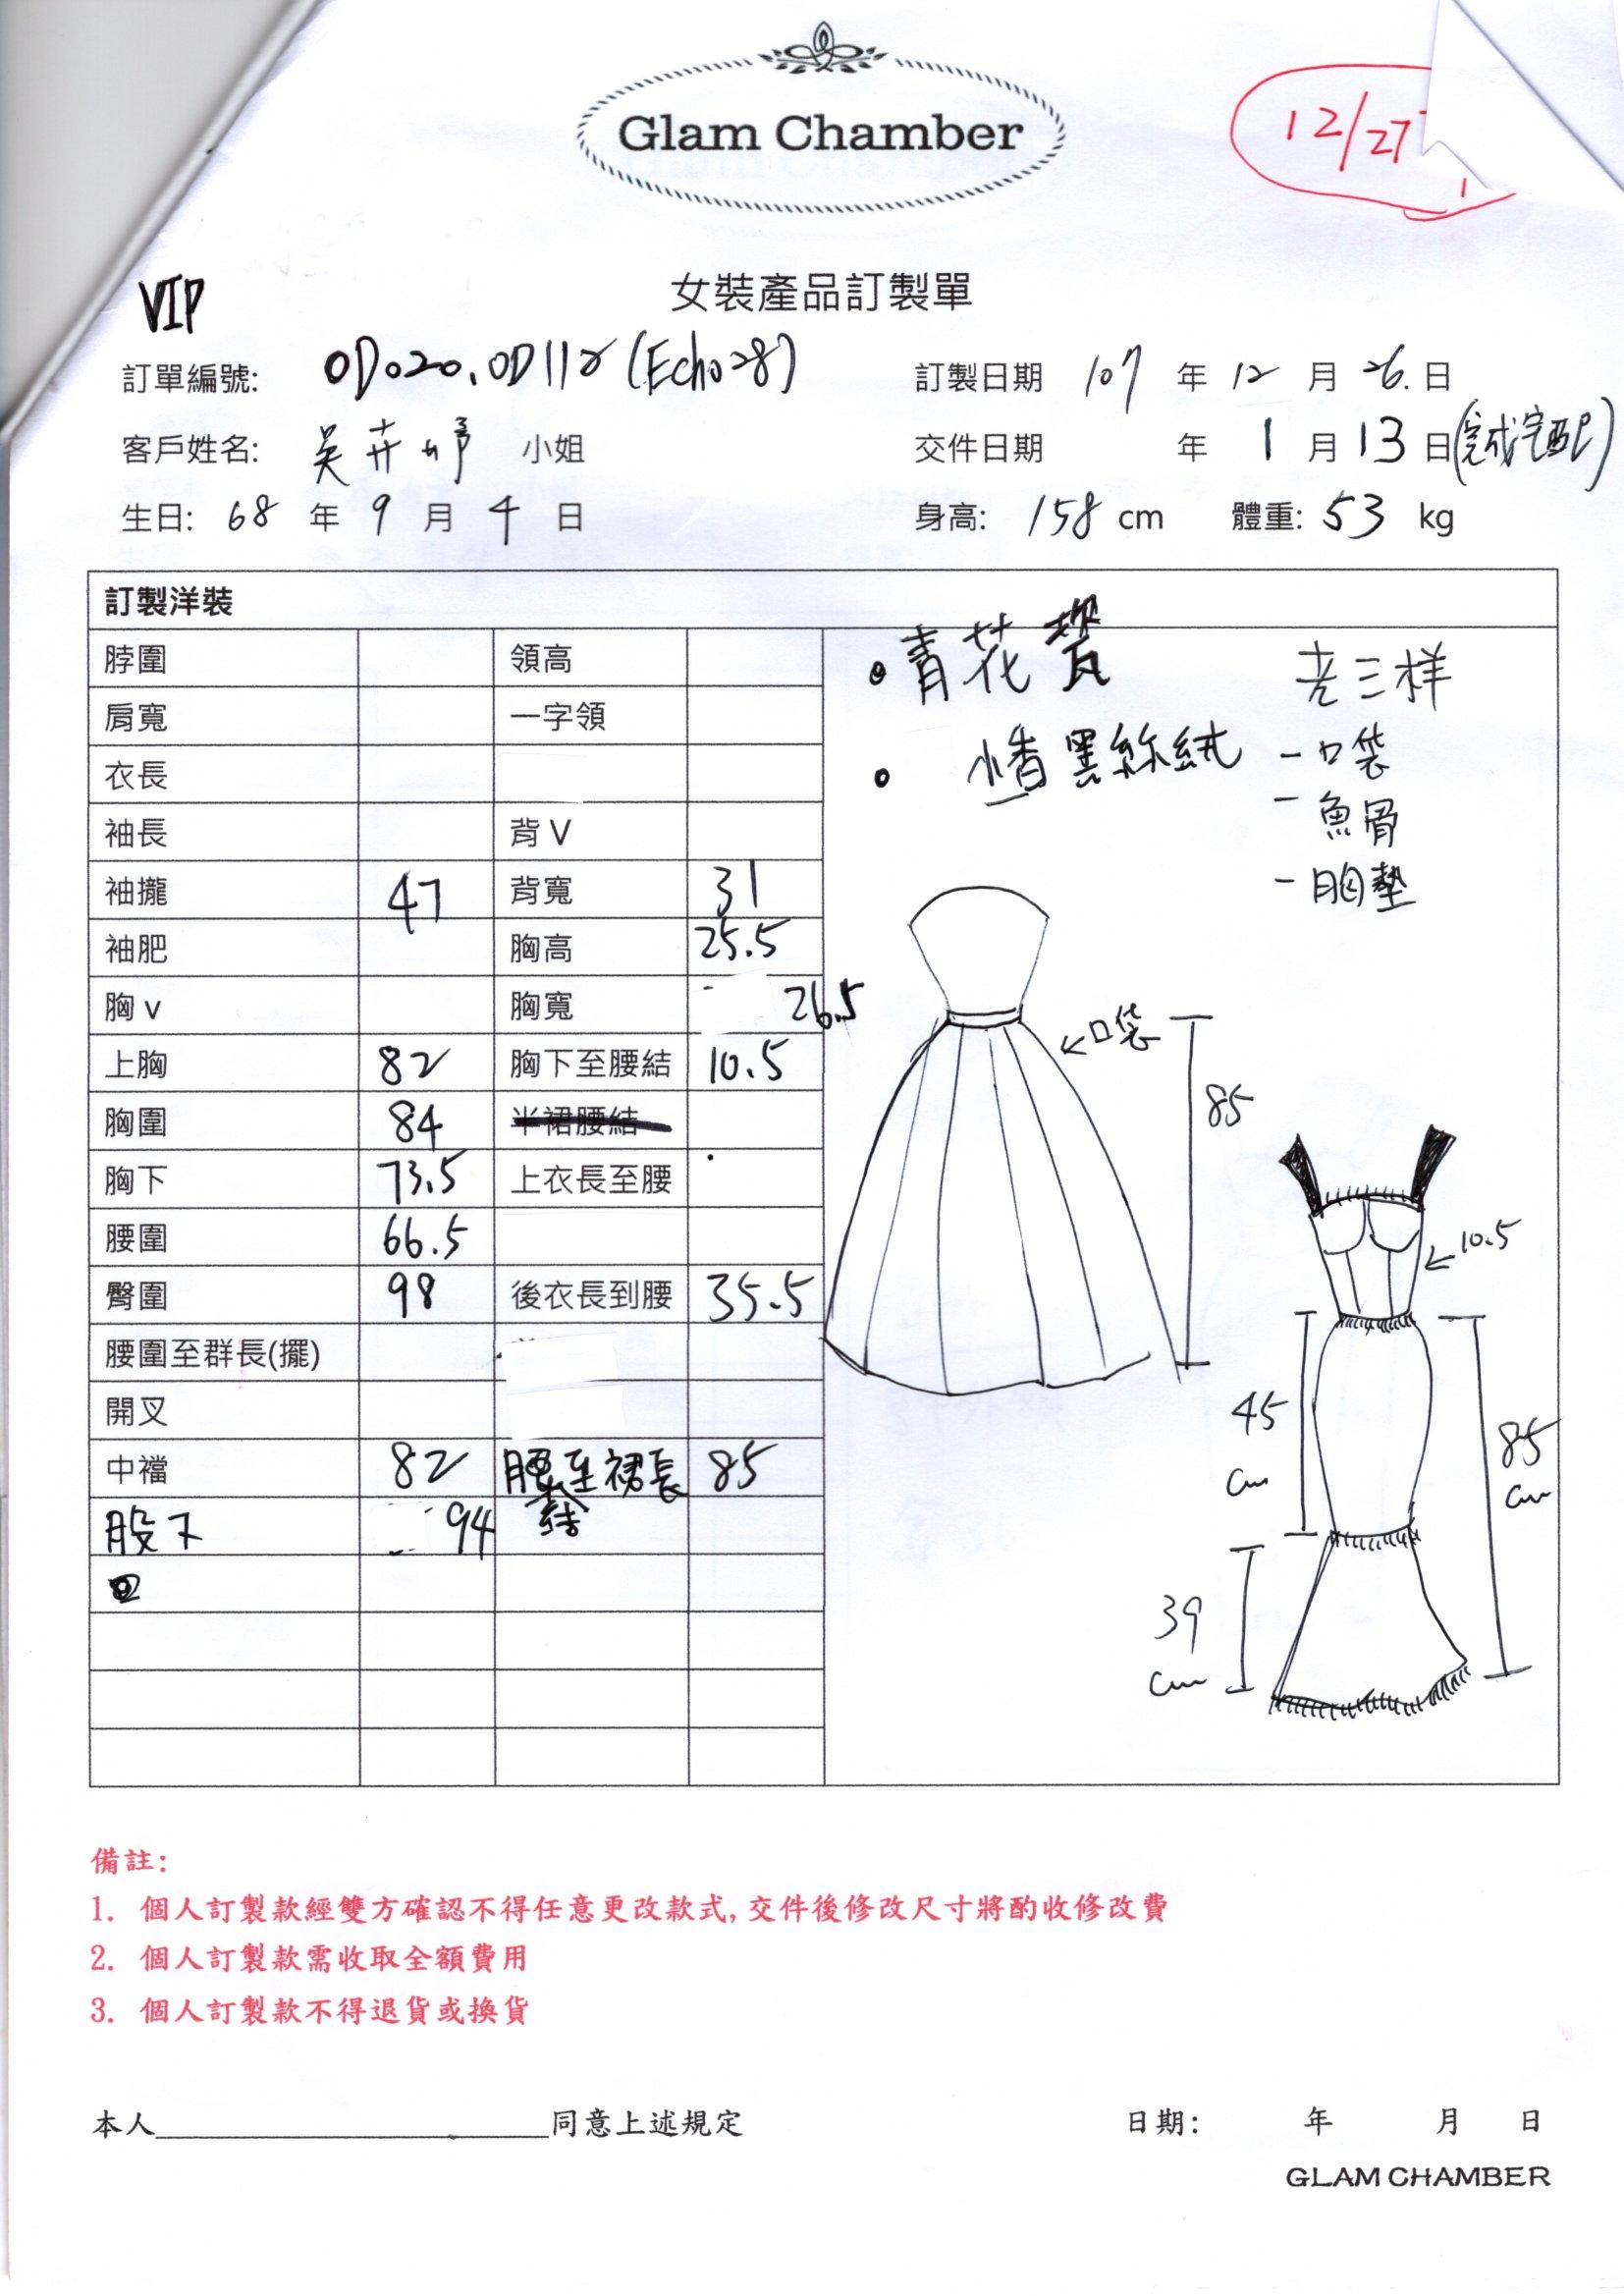 Glam Chamber
12/27
女裝產品訂製單
VIP
訂單編號: OD020.OD112 (Echo28)
訂製日期 107 年 12 月 26. 日
客戶姓名: 吳卉婷 小姐
交件日期 年 1 月 13 日(完成宅配)
生日: 68 年 9 月 4 日
身高: 158 cm 體重: 53 kg
訂製洋裝
脖圍 領高
肩寬 一字領
衣長
袖長 背 V
袖攏 47 背寬 31
袖肥 胸高 25.5
胸 v 胸寬 26.5
上胸 82 胸下至腰結 10.5
胸圍 84 半裙腰結
胸下 73.5 上衣長至腰
腰圍 66.5
臀圍 98 後衣長到腰 35.5
腰圍至群長(擺)
開叉
中襠 82 腰結至裙長 85
股下 94
青花瓷
黑絲絨
老三样
-口袋
-魚骨
-胸墊
←口袋
85
←10.5
45
cm
85
cm
39
cm
備註:
1. 個人訂製款經雙方確認不得任意更改款式,交件後修改尺寸將酌收修改費
2. 個人訂製款需收取全額費用
3. 個人訂製款不得退貨或換貨
本人 同意上述規定
日期: 年 月 日
GLAM CHAMBER